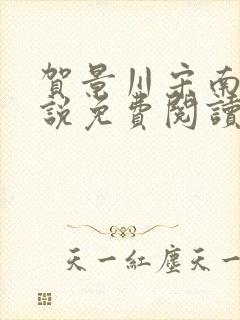 賀景川宋南
說免費閱讀
天一紅塵天一